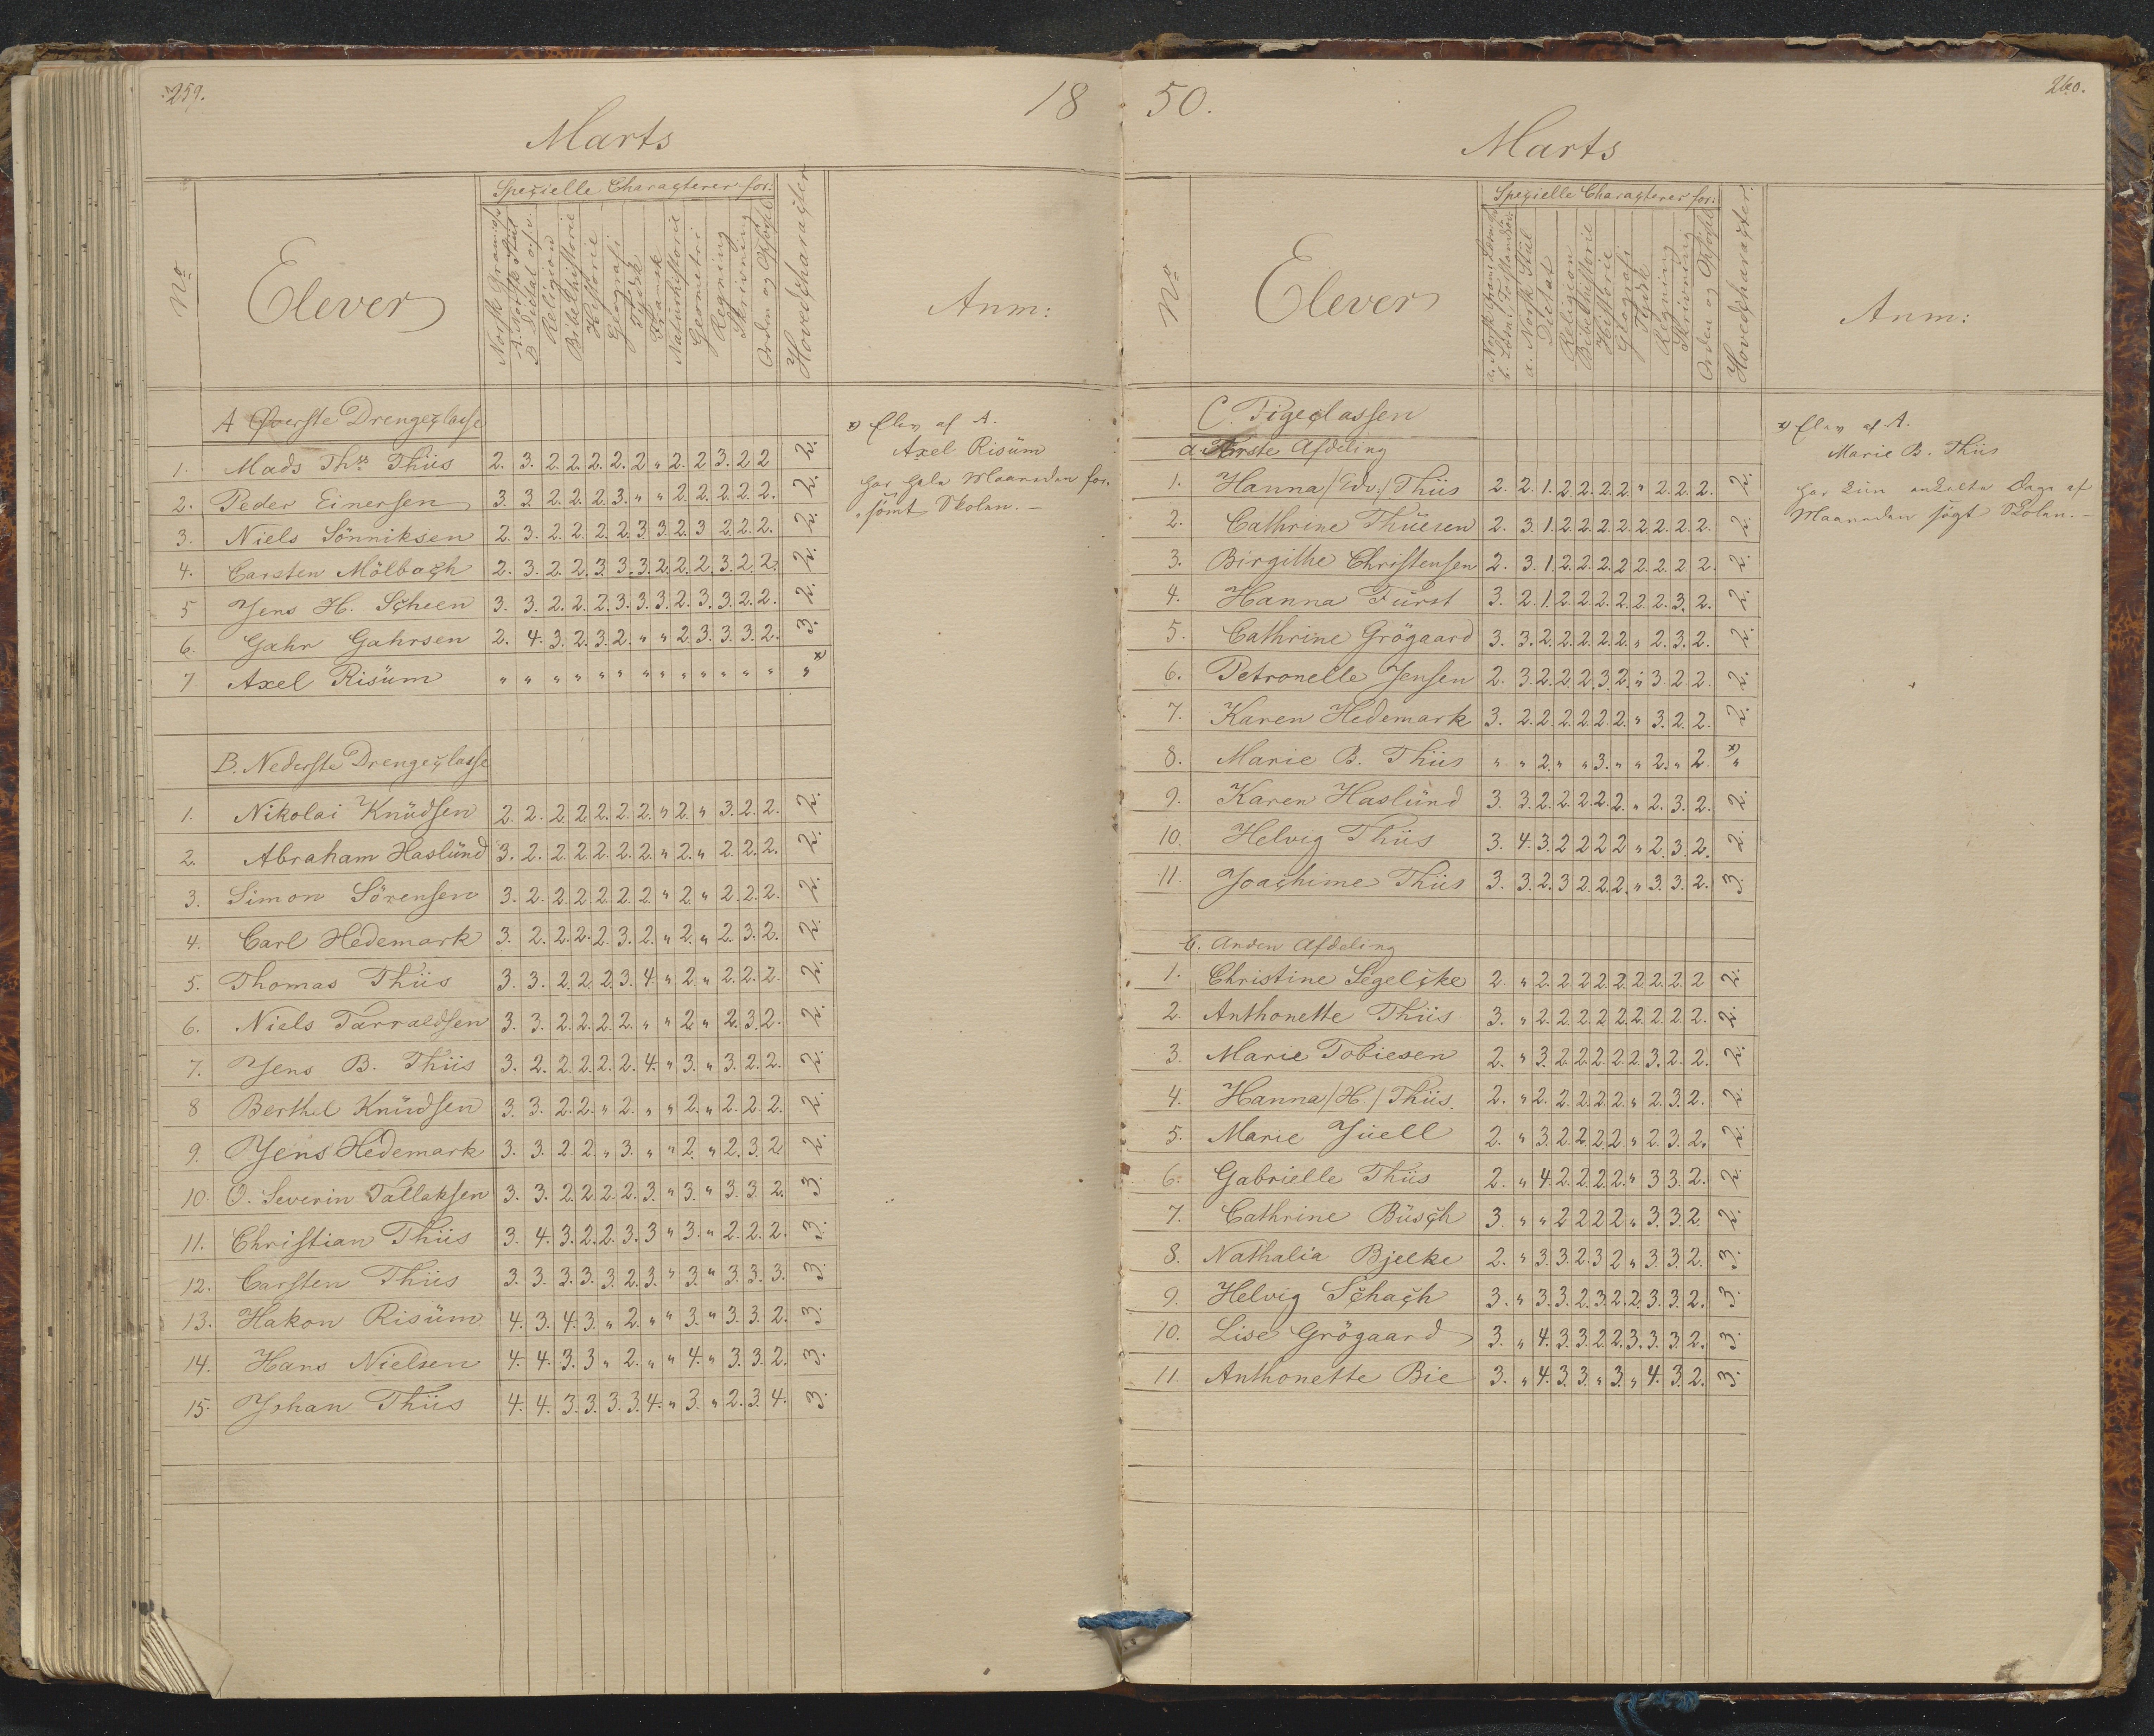 259.
18
Marts
No
Elever
Spezielle Characterer for:
Norsk Gram:
A. Norsk Stiil
B. Dictat
Religion
Bibelhistorie
Historie
Geografi
Tydsk
Fransk
Naturhistorie
Geometri
Regning
Skrivning
Orden og Opførs:
Hovedcharacter
Anm:
A Øverste Drengeclasse
1. Mads Ths Thiis 2. 3. 2. 2. 2. 2. 2 " 2. 2 3. 2 2 2.
2. Peder Einersen 3. 3. 2. 2. 2. 3. " " 2. 2. 2. 2. 2. 2.
3. Niels Sönniksen 2. 3. 2. 2. 2. 2. 3. 3. 2. 3 2. 2. 2. 2.
4. Carsten Mölbach 2. 3. 2. 2. 3. 3. 3. 2. 2. 2. 3. 2. 2. 2.
5 Jens H. Scheen 3. 3. 2. 2. 2. 3. 3. 3. 2. 3. 3. 2. 2. 2.
6. Gahr Gahrsen 2. 4. 3. 2. 3. 2. " " 2. 3. 3. 3. 2. 3.
7. Axel Risüm " " " " " " " " " " " " " " x)
x) Elev af A.
Axel Risüm
har hele Maaneden for-
sömt Skolen. —
B. Nederste Drengeclasse
1. Nikolai Knüdsen 2. 2. 2. 2. 2. 2. 2. " 2. " 3. 2. 2. 2.
2. Abraham Haslünd 3. 2. 2. 2. 2. 2. 2. " 2. " 2. 2. 2. 2.
3. Simon Sörensen 3. 2. 2. 2. 2. 2. 2. " 2. " 2. 2. 2. 2.
4. Carl Hedemark 3. 2. 2. 2. 2. 3. 2. " 2. " 2. 3. 2. 2.
5. Thomas Thiis 3. 3. 2. 2. 2. 3. 4. " 2. " 2. 2. 2. 2.
6. Niels Tarraldsen 3. 3. 2. 2. 2. 2. " " 2. " 2. 3. 2. 2.
7. Jens B. Thiis 3. 2. 2. 2. 2. 2. 4. " 3. " 3. 2. 2. 2.
8 Berthel Knüdsen 3. 3. 2. 2. " 2. " " 2. " 2. 2. 2. 2.
9. Jens Hedemark 3. 3. 2. 2. " 3. " " 2. " 2. 3. 2 2.
10. O. Severin Tallaksen 3. 3. 2. 2. 2. 2. 3. " 3. " 3. 3. 2. 3.
11. Christian Thiis 3. 4. 3. 2. 2. 3. 3 " 3. " 2. 2. 2. 3.
12. Carsten Thiis 3. 3. 3. 3. 3. 2. 3. " 3. " 3. 3. 3. 3.
13. Hakon Risüm 4. 3. 4. 3. " 2. " " 3. " 3. 3. 2. 3.
14. Hans Nielsen 4. 4. 3. 3 " 2. " " 4. " 3. 3. 2. 3.
15. Johan Thiis 4. 4. 3. 3. 3. 3. 4. " 3. " 2. 3. 4. 3.
50.
260.
Marts
No
Elever
Spezielle Characterer for:
a. Norsk Gram:
a. Norsk Stiil
Dictat
Religion
Bibelhistorie
Historie
Geografi
Tydsk
Regning
Skrivning
Orden og Opførs:
Hovedcharacter
Anm:
C. Pigeclassen
a. Første Afdeling
1. Hanna /Edv:/ Thiis 2. 2. 1. 2. 2. 2. 2. " 2. 2. 2. 2.
2. Cathrine Thüesen 2. 3. 1. 2. 2. 2. 2. 2. 2. 2. 2. 2.
3. Birgithe Christensen 2. 3. 1. 2. 2. 2. 2 2. 2. 2. 2. 2.
4. Hanna Fürst 3. 2. 1. 2. 2. 2. 2. 2. 2. 3. 2. 2.
5. Cathrine Grögaard 3. 3. 2. 2. 2. 2. 2. " 2. 3. 2. 2.
6. Petronelle Jensen 2. 3. 2. 2. 2. 3. 2. " 3. 2. 2. 2.
7. Karen Hedemark 3. 2. 2. 2. 2. 2. 2. " 3. 2. 2. 2.
8. Marie B. Thiis " " 2. " " 3. " " 2. " 2. " x)
9. Karen Haslünd 3. 3. 2. 2. 2. 2. 2. " 2. 3. 2. 2.
10. Helvig Thiis 3. 4. 3. 2 2 2 2 " 2. 3. 2. 2.
11. Joachime Thiis 3. 3. 2. 3 2. 2. 2. " 3. 3. 2. 3.
x) Elev af A.
Marie B. Thiis
har kün enkelte Dage af
Maaneden sögt Skolen. —
b. Anden Afdeling
1. Christine Segelcke 2. " 2. 2. 2 2. 2. 2. 2. 2. 2 2.
2. Anthonette Thiis 3. " 2. 2. 2. 2. 2. 2. 2. 2. 2. 2.
3. Marie Tobiesen 2. " 3. 2. 2. 2. 2. 2. 3. 2. 2. 2.
4. Hanna /H./ Thiis. 2. " 2. 2. 2. 2. 2. " 2. 3. 2. 2.
5. Marie Jüell 2. " 3. 2. 2. 2. 2. " 2. 3. 2. 2.
6. Gabrielle Thiis 2. " 4. 2. 2. 2. 2. " 3 3. 2. 2.
7. Cathrine Büsch 3. " " 2 2 2 2. " 3. 3. 2. 2.
8. Nathalia Bjelke 2. " 3. 3. 2. 3 2. " 3. 3. 2. 3.
9. Helvig Schach 3. " 3. 3. 2. 3. 2. 2. 3. 3. 2. 3.
10. Lise Grögaard 3. " 4. 3. 3. 2. 2. 3. 3. 3. 2. 3.
11. Anthonette Bie 3. " 4. 3. 3. " 3. " 4. 3. 2. 3.